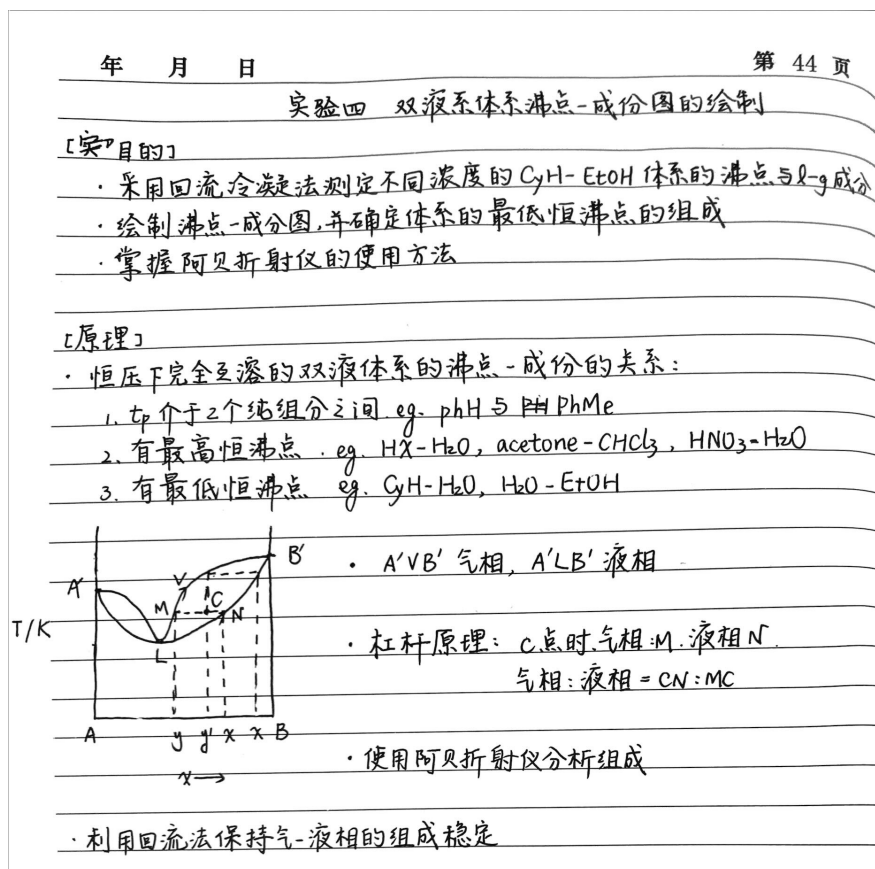 年 月 日 第 44 页
实验四 双液系体系沸点-成份图的绘制
[实目的]
· 采用回流冷凝法测定不同浓度的 CyH-EtOH 体系的沸点与l-g成分
· 绘制沸点-成分图,并确定体系的最低恒沸点的组成
· 掌握阿贝折射仪的使用方法
[原理]
· 恒压下完全互溶的双液体系的沸点-成份的关系:
1. tp 介于2个纯组分之间 eg. phH 与 PhMe
2. 有最高恒沸点. eg. HX-H2O, acetone-CHCl3, HNO3-H2O
3. 有最低恒沸点 eg. CyH-H2O, H2O-EtOH
A' V M C N L B'
T/K
A y y' x x B
x→
· A'VB' 气相, A'LB' 液相
· 杠杆原理: C点时,气相:M.液相N.
气相:液相=CN:MC
· 使用阿贝折射仪分析组成
· 利用回流法保持气-液相的组成稳定